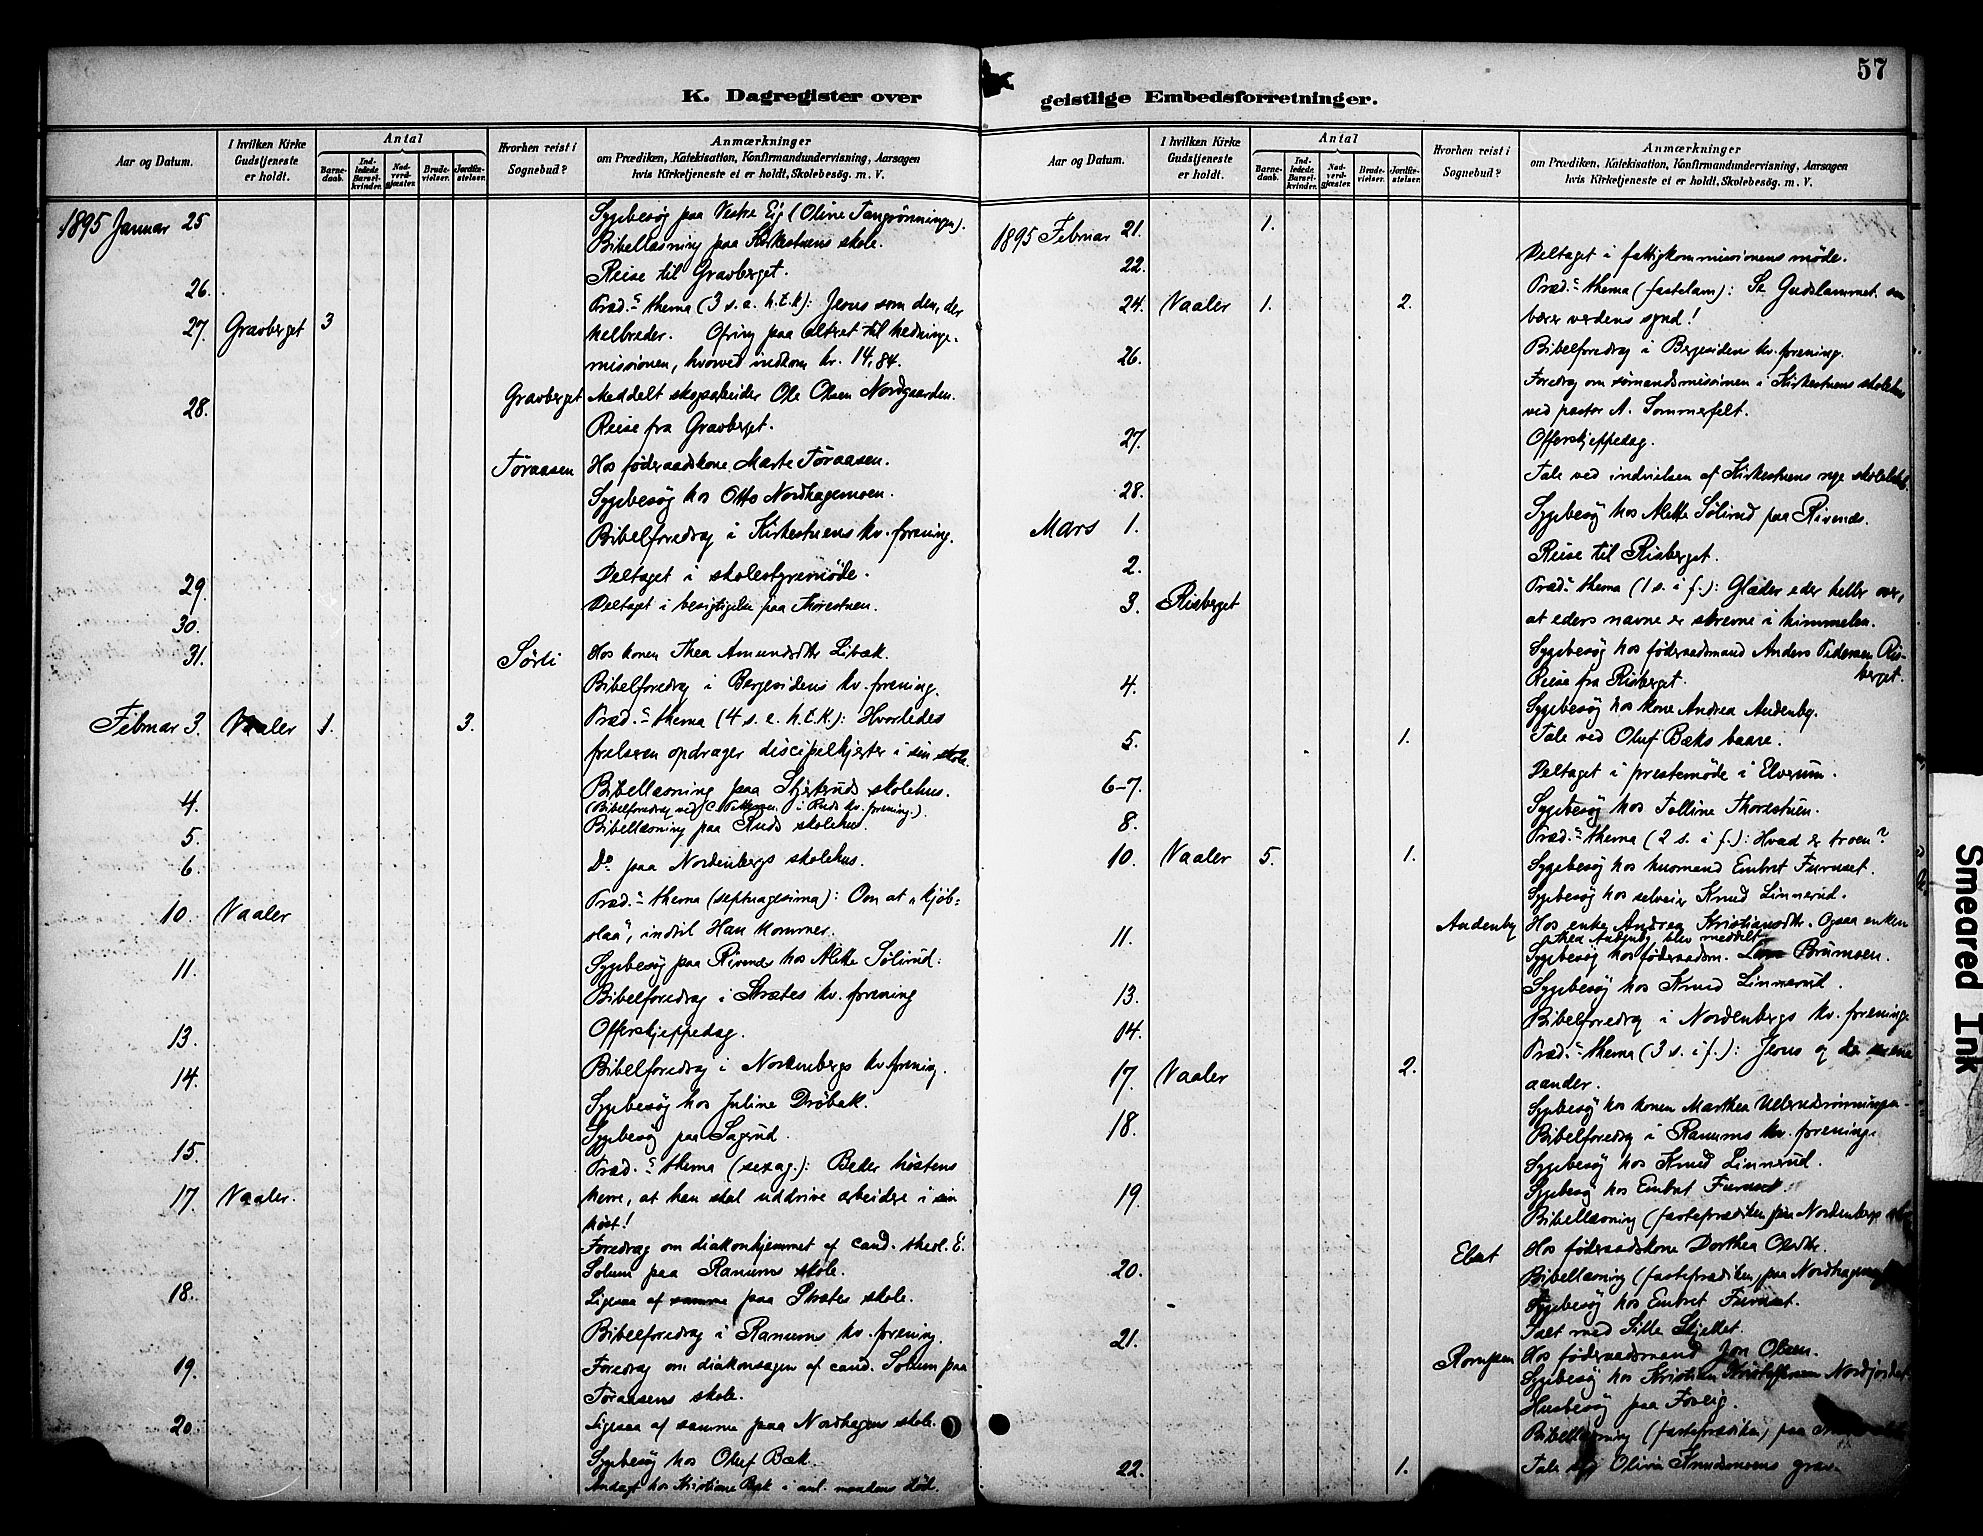 57
K. Dagregister over geistlige Embedsforretninger.
Aar og Datum. I hvilken Kirke Gudstjeneste er holdt. Antal Barnedaab. Indledede Barselkvinder. Nadverdgjæster. Brudevielser. Jordfæstelser. Hvorhen reist i Sognebud? Anmærkninger om Prædiken, Katekisation, Konfirmandundervisning, Aarsagen hvis Kirketjeneste ei er holdt, Skolebesøg. m. V.
1895 Januar 25 Sygebesøg paa Vestre Eig (Oline Tangrønningen).
Bibellæsning paa Kirkestuens skole.
26. Reise til Gravberget.
27. Gravberget 3 Præd.s thema (3 s. e. h.t.k): Jesus som den, der
helbreder. Ofring paa altret til hedninge-
missionen, hvorved indkom kr. 14,84.
28. Gravberget Meddelt skogsarbeider Ole Olsen Nordgaarden.
Reise fra Gravberget.
Toraasen Hos føderaadskone Marte Toraasen.
Sygebesøg hos Otto Nordhagemoen.
Bibelforedrag i Kirkestuens kv.forening.
29. Deltaget i skolestyremøde.
30. Deltaget i besigtigelse paa Thorestuen.
31. Sørli Hos konen Thea Amundsdtr Libæk.
Bibelforedrag i Bergesidens kv.forening.
Februar 3. Vaaler 1. 3. Præd.s thema (4 s. e. h.t.k.): Hvorledes
frelseren opdrager discipelhjerter i sin skole.
4. Bibellæsning paa Skjæreruds skolehus.
(Bibelforedrag ved C. i Ruds kv. forening.)
5. Bibellæsning paa Ruds skolehus.
6. Do paa Nordenbergs skolehus.
10. Vaaler Præd.s thema (septuagesima): Om at "kjøb-
slaa", indtil Han kommer.
11. Sygebesøg paa Rivenes hos Alette Sølirud.
Bibelforedrag i Strætes kv. forening
13. Offerskjeppedag.
14. Bibelforedrag i Nordenbergs kv.forening.
Sygebesøg hos Juline Drøbak.
15. Sygebesøg paa Sagrud.
17. Vaaler. Præd.s thema (sexag.): Beder høstens
herre, at han skal uddrive arbeidere i sin
høst!
Foredrag om diakonhjemmet af cand. theol. E.
Solum paa Ranums skole.
18. Ligesaa af samme paa Strætes skole.
Bibelforedrag i Ranums kv. forening.
19. Foredrag om diakonsagen af cand. Solum paa
Toraasens skole.
20. Ligesaa af samme paa Nordhagens skole.
Sygebesøg hos Oluf Bæk.
Andagt hos Kristiane Bæk i anl. mandens død.
Aar og Datum. I hvilken Kirke Gudstjeneste er holdt. Antal Barnedaab. Indledede Barselkvinder. Nadverdgjæster. Brudevielser. Jordfæstelser. Hvorhen reist i Sognebud? Anmærkninger om Prædiken, Katekisation, Konfirmandundervisning, Aarsagen hvis Kirketjeneste ei er holdt, Skolebesøg. m. V.
1895 Februar 21. 1.
22. Deltaget i fattigkommissionens møde.
24. Vaaler 1. 2. Præd.s thema (fastelavn): Se Gudslammet, som
bærer verdens synd!
26. Bibelforedrag i Bergesidens kv.forening.
Foredrag om sømandsmissionen i Kirkestuens skolehus
ved pastor A. Sommerfelt.
27. Offerskjeppedag.
28. Tale ved indvielsen af Kirkestuens nye skolelokal.
Mars 1. Sygebesøg hos Alette Sølirud paa Rivenes.
2. Reise til Risberget.
3. Risberget Præd.s thema (1 s. i f.): Glæder eder heller over,
at eders navne er skrevne i himmelen.
Sygebesøg hos føderaadsmand Anders Pedersen Ris-
berget.
4. Reise fra Risberget.
Sygebesøg hos kone Andrea Audenby.
5. 1. Tale ved Oluf Bæks baare.
6-7. Deltaget i prestemøde i Elverum.
8. Sygebesøg hos Talline Thorestuen.
10. Vaaler 5. 1. Præd.s thema (2 s. i f.): Hvad er troen?
Sygebesøg hos husmand Embret Furuset.
Sygebesøg hos selveier Knud Linnerud.
11. Audenby Hos enke Andrea Kristiansdtr. Ogsaa enken
Thea Audenby blev meddelt.
Sygebesøg hos føderaadsm. Brumoen.
13. Sygebesøg hos Knud Linnerud.
14. Bibelforedrag i Nordenbergs kv. forening.
17. Vaaler 2. Præd.s thema (3 s. i f.): Jesus og de urene
aander.
18. Sygebesøg hos konen Marthea Ullerudrønningen.
Bibelforedrag i Ranums kv. forening.
Sygebesøg hos Knud Linnerud.
19. Sygebesøg hos Embret Furuset.
Bibellæsning (fasteprædiken) paa Nordenbergs
Ebæt Hos føderaadskone Dorthea Olsdtr.
20. Bibellæsning (fasteprædiken) paa Nordhagens
Sygebesøg hos Embret Furuset.
21. Talt med Sille Skjellet.
Hos føderaadsmand Jon Olsen.
Sygebesøg hos Kristian Kristoffersen Nordjordet
Husbesøg paa Foseig.
Bibellæsning (fasteprædiken) paa
22. 1. Tale Olivia Knudsmoens grav.
Smeared Ink